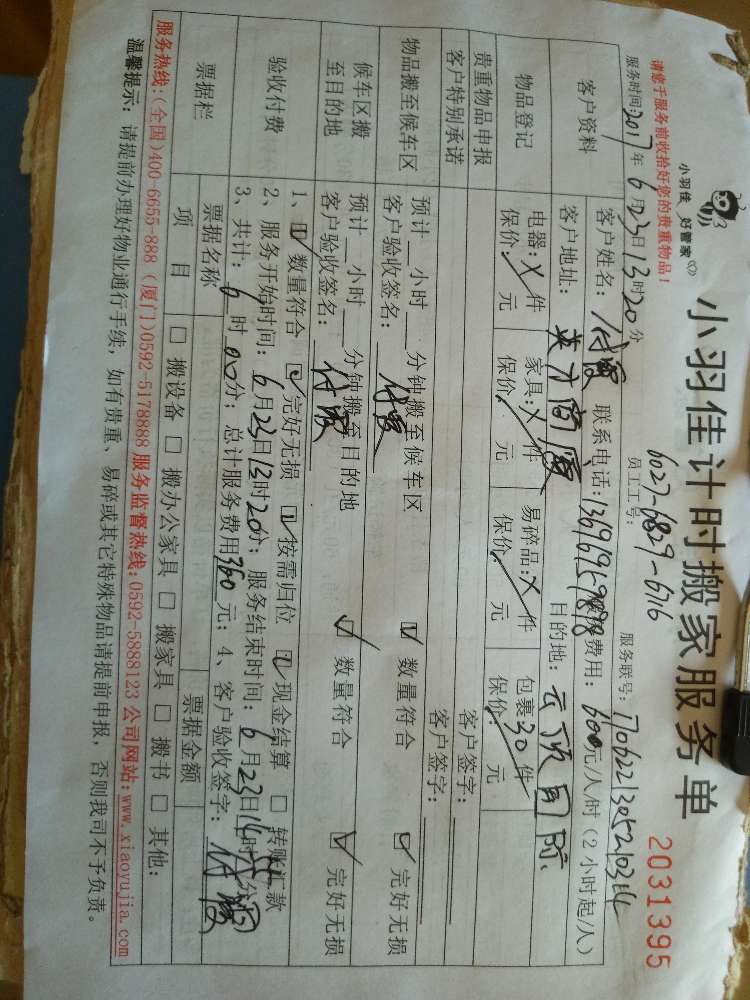 小羽佳 好管家
小羽佳计时搬家服务单
2031395
请您于服务前收拾好您的贵重物品！
员工工号：6027-6829-6716
服务时间：2017年6月23日13时20分
服务联号：
客户资料
客户姓名：付霞 联系电话：费用：600元/人/时（2小时起/人）
客户地址：英才商厦 目的地：
物品登记
电器：X件 家具：X件 易碎品：X件 包裹30件
保价： 元 保价： 元 保价： 元 保价： 元
贵重物品申报
客户签字：
客户特别承诺
客户签字：
物品搬至候车区
预计 小时 分钟搬至候车区 ☑ 数量符合 ☑ 完好无损
客户验收签名：付霞
候车区搬至目的地
预计 小时 分钟搬至目的地 ☑ 数量符合 ☑ 完好无损
客户验收签名：付霞
验收付费
1、☑ 数量符合 ☑ 完好无损 ☑ 按需归位 ☑ 现金结算 □ 转账汇款
2、服务开始时间：6月23日13时20分；服务结束时间：6月23日14时 分
3、共计：6时00分；总计服务费用360元；4、客户验收签字：付霞
票据栏
票据名称 票据金额
项 目 □ 搬设备 □ 搬办公家具 □ 搬家具 □ 搬书 □ 其他：
服务热线：(全国)400-6655-888 (厦门)0592-5178888 服务监督热线：0592-5888123 公司网站：www.xiaoyujia.com
温馨提示：请提前办理好物业通行手续，如有贵重、易碎或其它特殊物品请提前申报，否则我司不予负责。